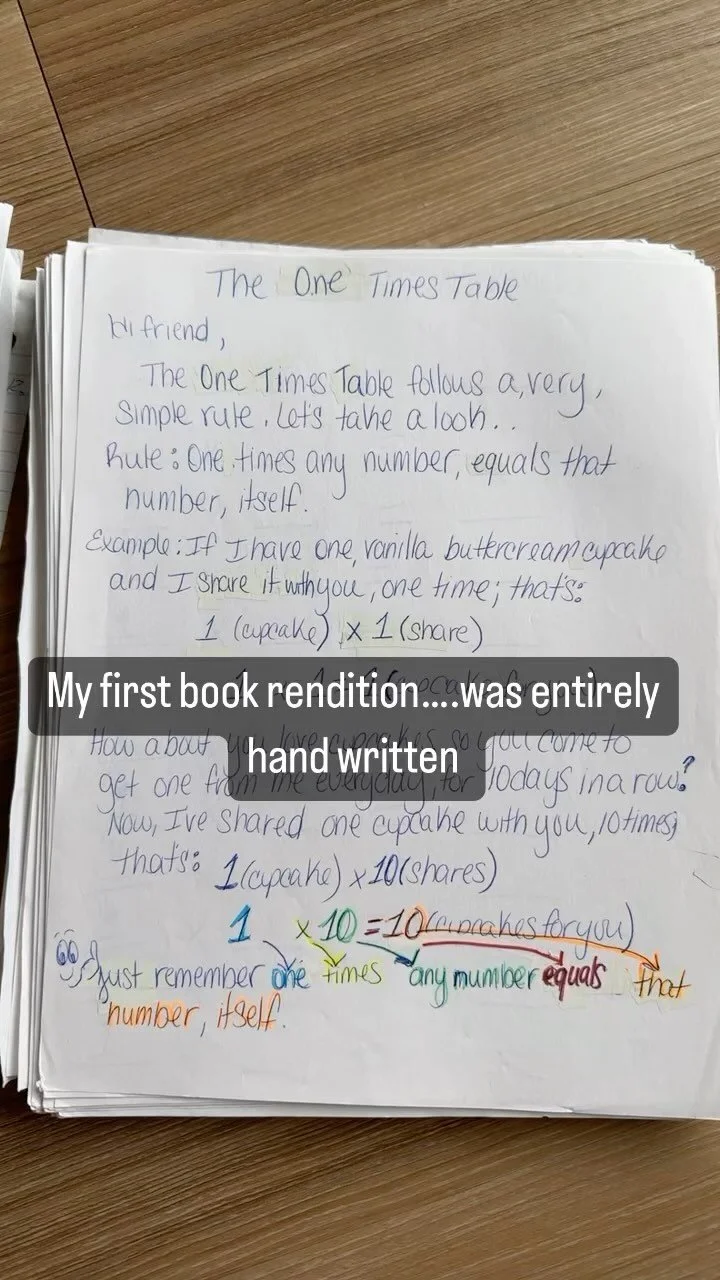 The One Times Table
Hi friend,
The One Times Table follows a, very,
simple rule. Let's take a look..
Rule: One times any number, equals that
number, itself.
Example: If I have one, vanilla buttercream cupcake
and I share it with you, one time; that's:
1 (cupcake) x 1 (share)
My first book rendition....was entirely
hand written
How about you love cupcakes, so you come to
get one from me everyday, for 10 days in a row?
Now, I've shared one cupcake with you, 10 times;
that's: 1 (cupcake) x 10 (shares)
1 x 10 = 10 (cupcakes for you)
Just remember one times any number equals that
number, itself.